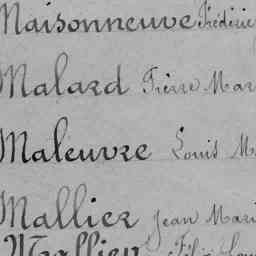 Maisonneuve Frédéric
Malard Pierre Mar
Maleuvre Louis Ma
Mallier Jean Mari
Mallier Félix Lou